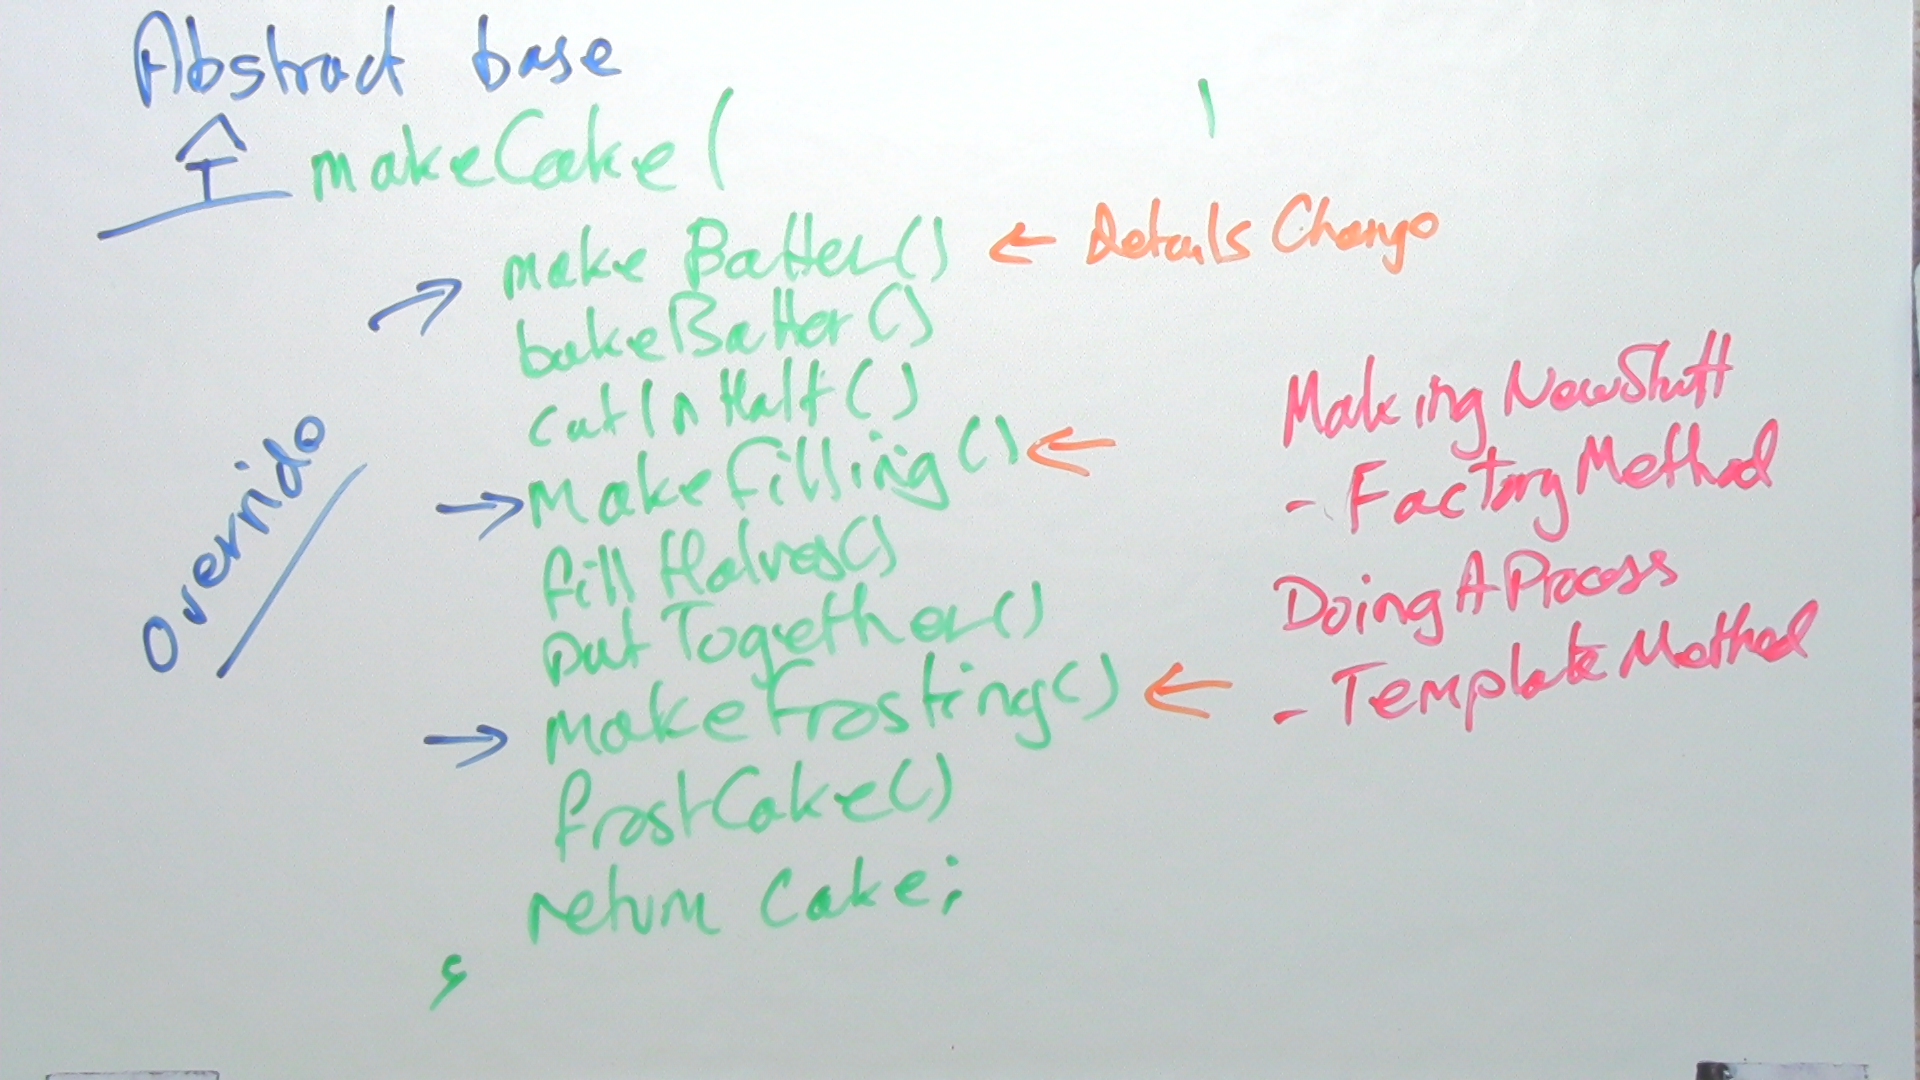 Abstract base
makeCake( )
make Batter() ← Details Change
bakeBatter()
cutInHalf()
MakeFilling() ←
fill Halves()
put Together()
makeFrosting() ←
frostCake()
return Cake;
}
Override
Making NewStuff
- Factory Method
Doing A Process
- Template Method